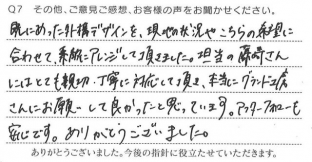 Q7 その他、ご意見ご感想、お客様の声をお聞かせください。
気にいった外構デザインを、現地の状況やこちらの希望に
合わせて、素敵にアレンジして頂きました。担当の藤崎さん
にはとても親切、丁寧に対応して頂き、本当にグランド工房
さんにお願いして良かったと思っています。アフターフォローも
安心です。ありがとうございました。
ありがとうございました。今後の指針に役立たせていただきます。